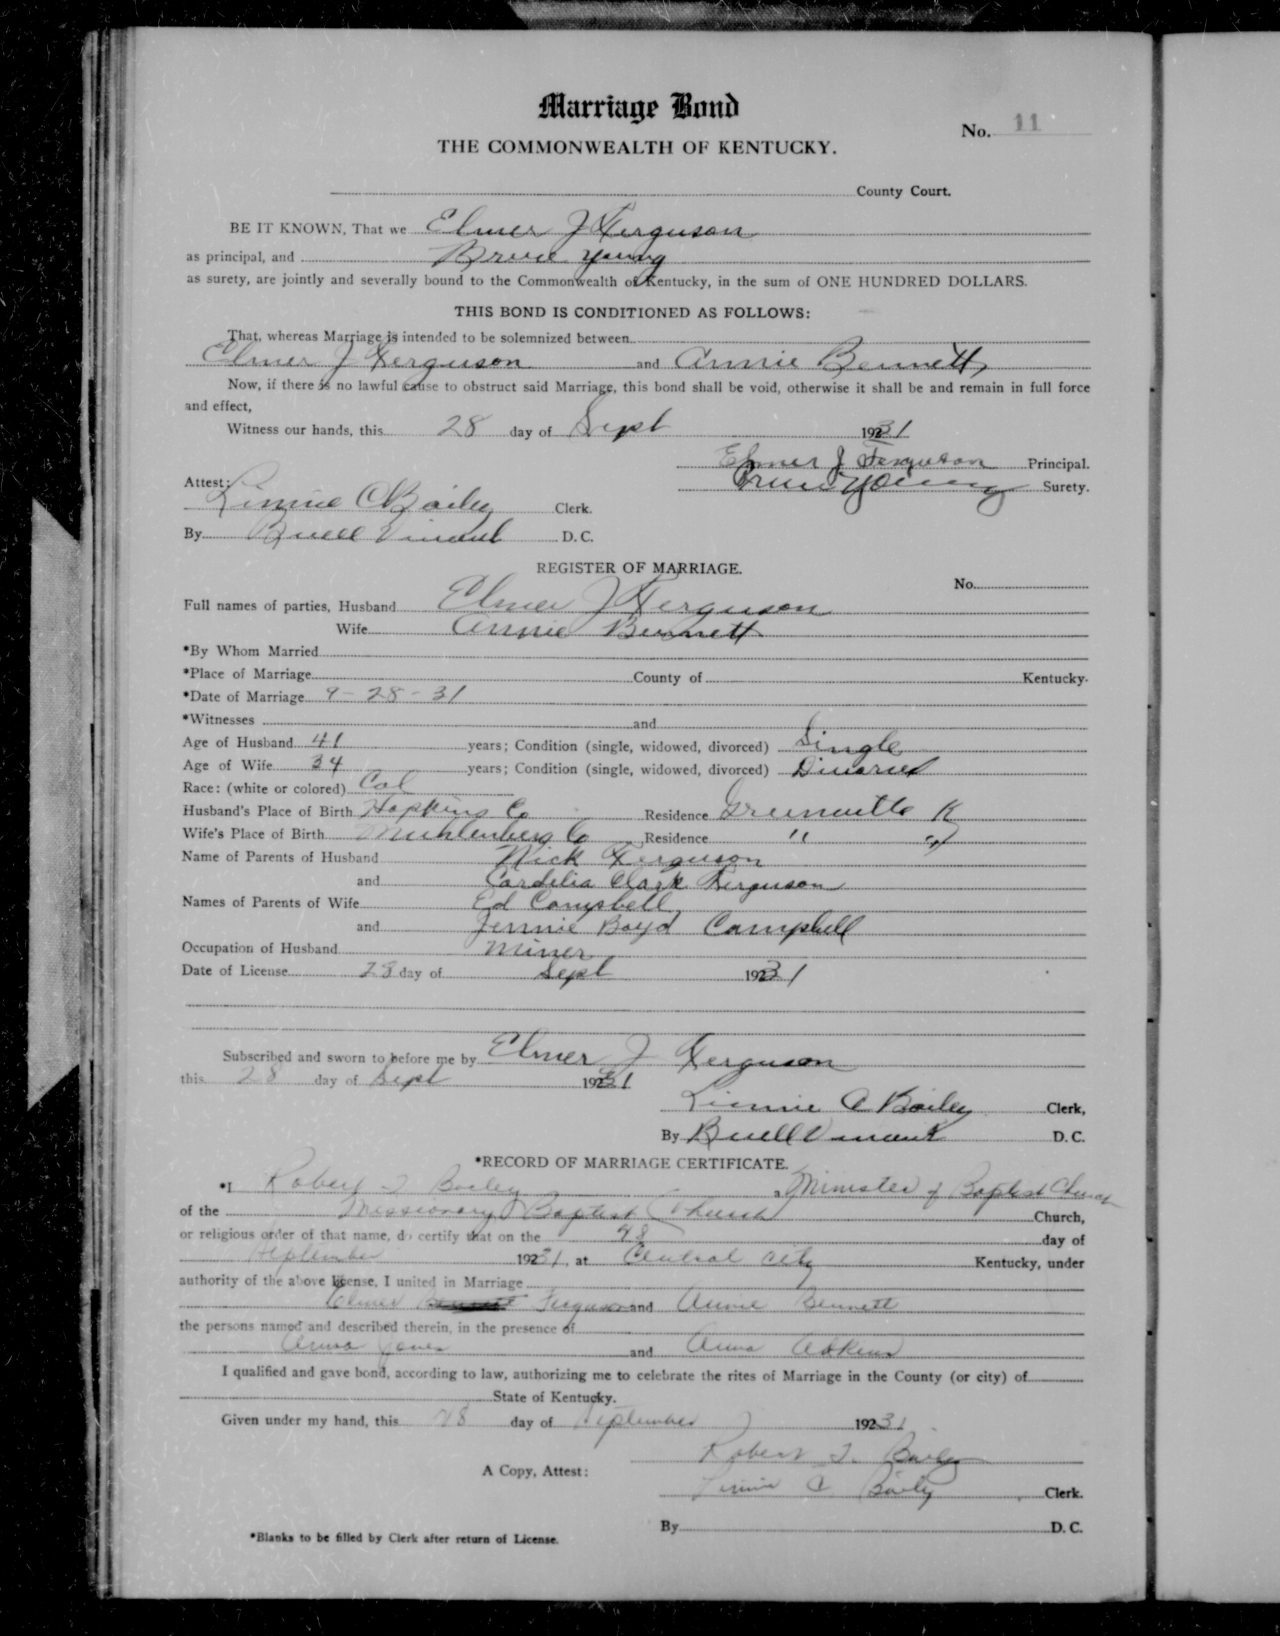 Marriage Bond
No. 11
THE COMMONWEALTH OF KENTUCKY.
County Court.
BE IT KNOWN, That we Elmer J Ferguson
as principal, and Bruce Young
as surety, are jointly and severally bound to the Commonwealth of Kentucky, in the sum of ONE HUNDRED DOLLARS.
THIS BOND IS CONDITIONED AS FOLLOWS:
That, whereas Marriage is intended to be solemnized between
Elmer J Ferguson and Annie Bennett,
Now, if there is no lawful cause to obstruct said Marriage, this bond shall be void, otherwise it shall be and remain in full force
and effect,
Witness our hands, this 28 day of Sept 1931
Elmer J Ferguson Principal.
Attest: Bruce Young Surety.
Linnie C Bailey Clerk.
By Buell Vincent D. C.
REGISTER OF MARRIAGE.
No.
Full names of parties, Husband Elmer J Ferguson
Wife Annie Bennett
*By Whom Married
*Place of Marriage County of Kentucky.
*Date of Marriage 9-28-31
*Witnesses and
Age of Husband 41 years; Condition (single, widowed, divorced) Single
Age of Wife 34 years; Condition (single, widowed, divorced) Divorced
Race: (white or colored) Col
Husband's Place of Birth Hopkins Co Residence Greenville K
Wife's Place of Birth Muhlenberg Co Residence " "
Name of Parents of Husband Nick Ferguson
and Cordelia Clark Ferguson
Names of Parents of Wife Ed Campbell
and Jennie Boyd Campbell
Occupation of Husband Miner
Date of License 28 day of Sept 1931
Subscribed and sworn to before me by Elmer J Ferguson
this 28 day of Sept 1931
Linnie C Bailey Clerk,
By Buell Vincent D. C.
*RECORD OF MARRIAGE CERTIFICATE.
*I Robert T Bailey, a Minister of Baptist Church
of the Missionary Baptist Church Church,
or religious order of that name, do certify that on the 28 day of
September 1931, at Central City Kentucky, under
authority of the above license, I united in Marriage
Elmer Bennett Ferguson and Annie Bennett
the persons named and described therein, in the presence of
Anna Jones and Anna Adkins
I qualified and gave bond, according to law, authorizing me to celebrate the rites of Marriage in the County (or city) of
State of Kentucky.
Given under my hand, this 28 day of September 1931
Robert T. Bailey
A Copy, Attest:
Linnie C Bailey Clerk.
By D. C.
*Blanks to be filled by Clerk after return of License.